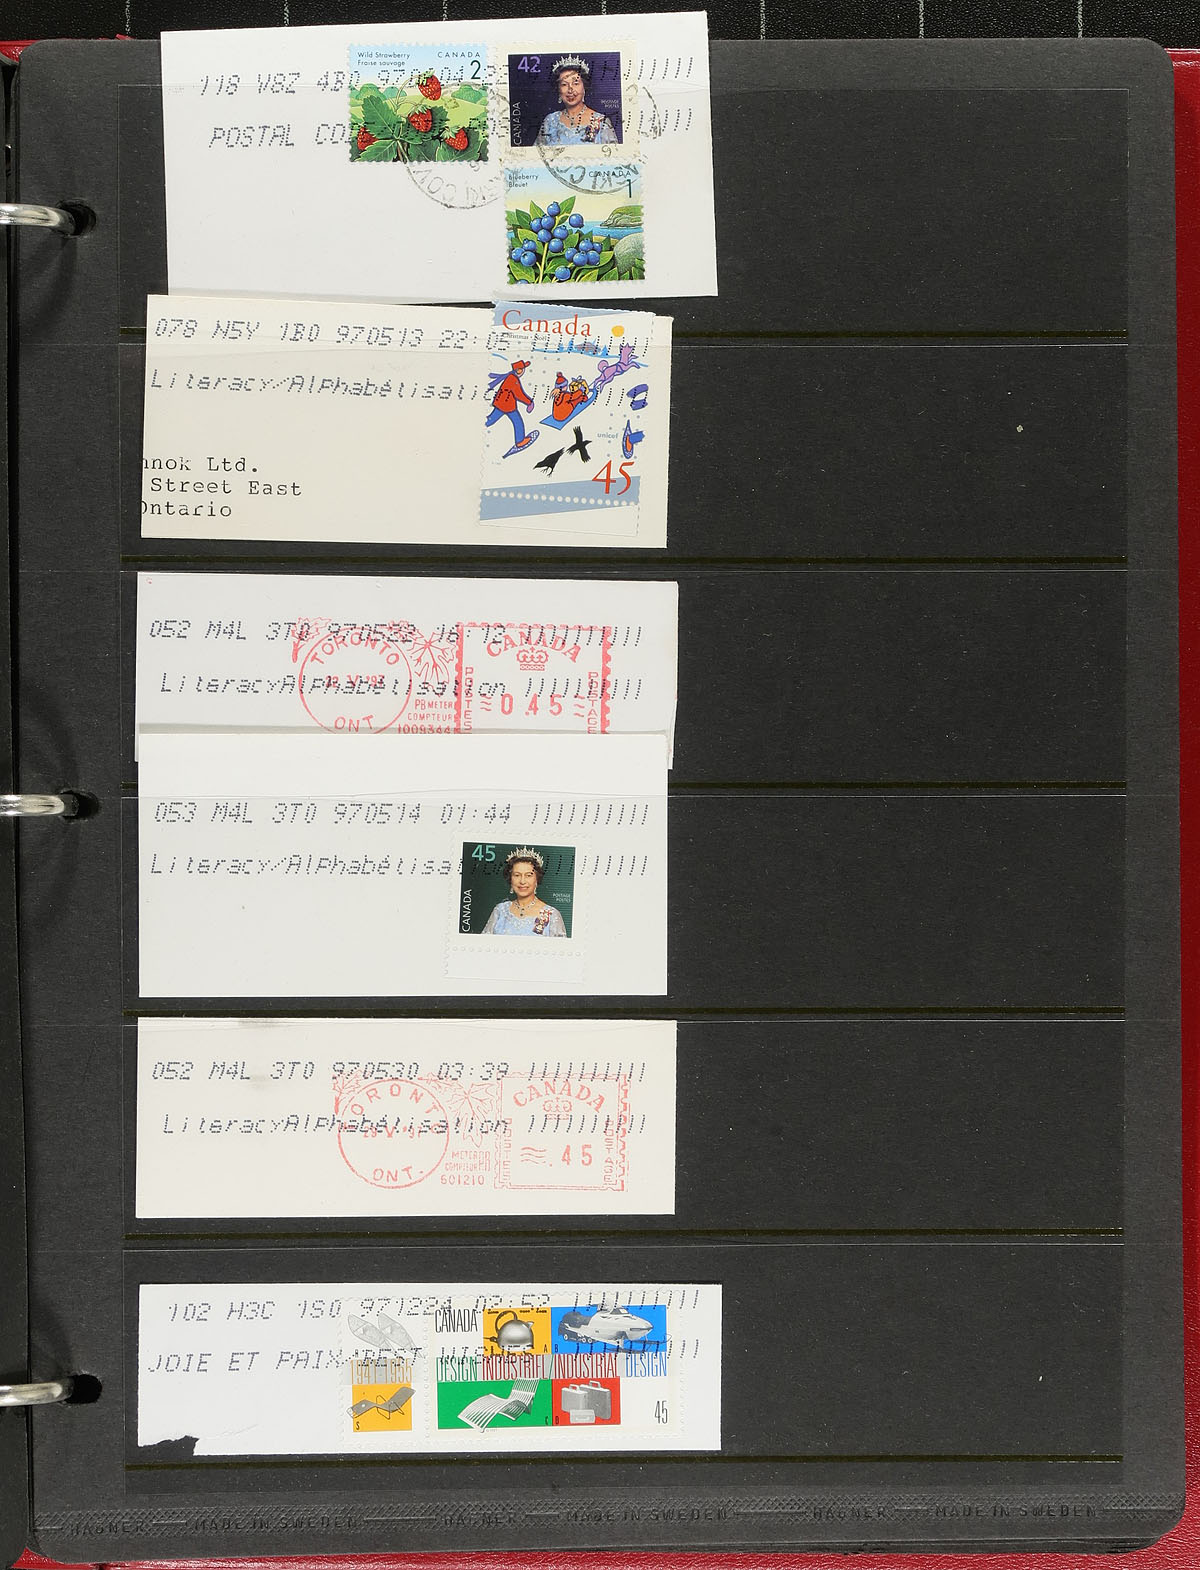 118 W8Z 4B0 970404 22
POSTAL CODE
Wild Strawberry
Fraise sauvage
CANADA
2
42
CANADA
POSTAGE
POSTES
Blueberry
Bleuet
CANADA
1
078 N5Y 1B0 970513 22:05
Literacy/Alphabétisation
Canada
Christmas · Noël
unicef
45
nnok Ltd.
Street East
Ontario
052 M4L 3T0 970522 16:12
LiteracyAlphabétisation
TORONTO
ONT
PB METER
COMPTEUR
1009344
CANADA
POSTES
0.45
POSTAGE
053 M4L 3T0 970514 01:44
Literacy/Alphabétisation
45
CANADA
POSTAGE
POSTES
052 M4L 3T0 970530 03:39
LiteracyAlphabétisation
TORONTO
ONT.
METER
COMPTEUR PB
601210
CANADA
POSTES
.45
POSTAGE
102 H3C 1S0 971224 02:52
JOIE ET PAIX/BEST WISHES
1941-1955
S
CANADA
A B
DESIGN INDUSTRIEL/INDUSTRIAL DESIGN
C D
45
HAGNER MADE IN SWEDEN HAGNER MADE IN SWEDEN HAGNER MADE IN SWEDEN